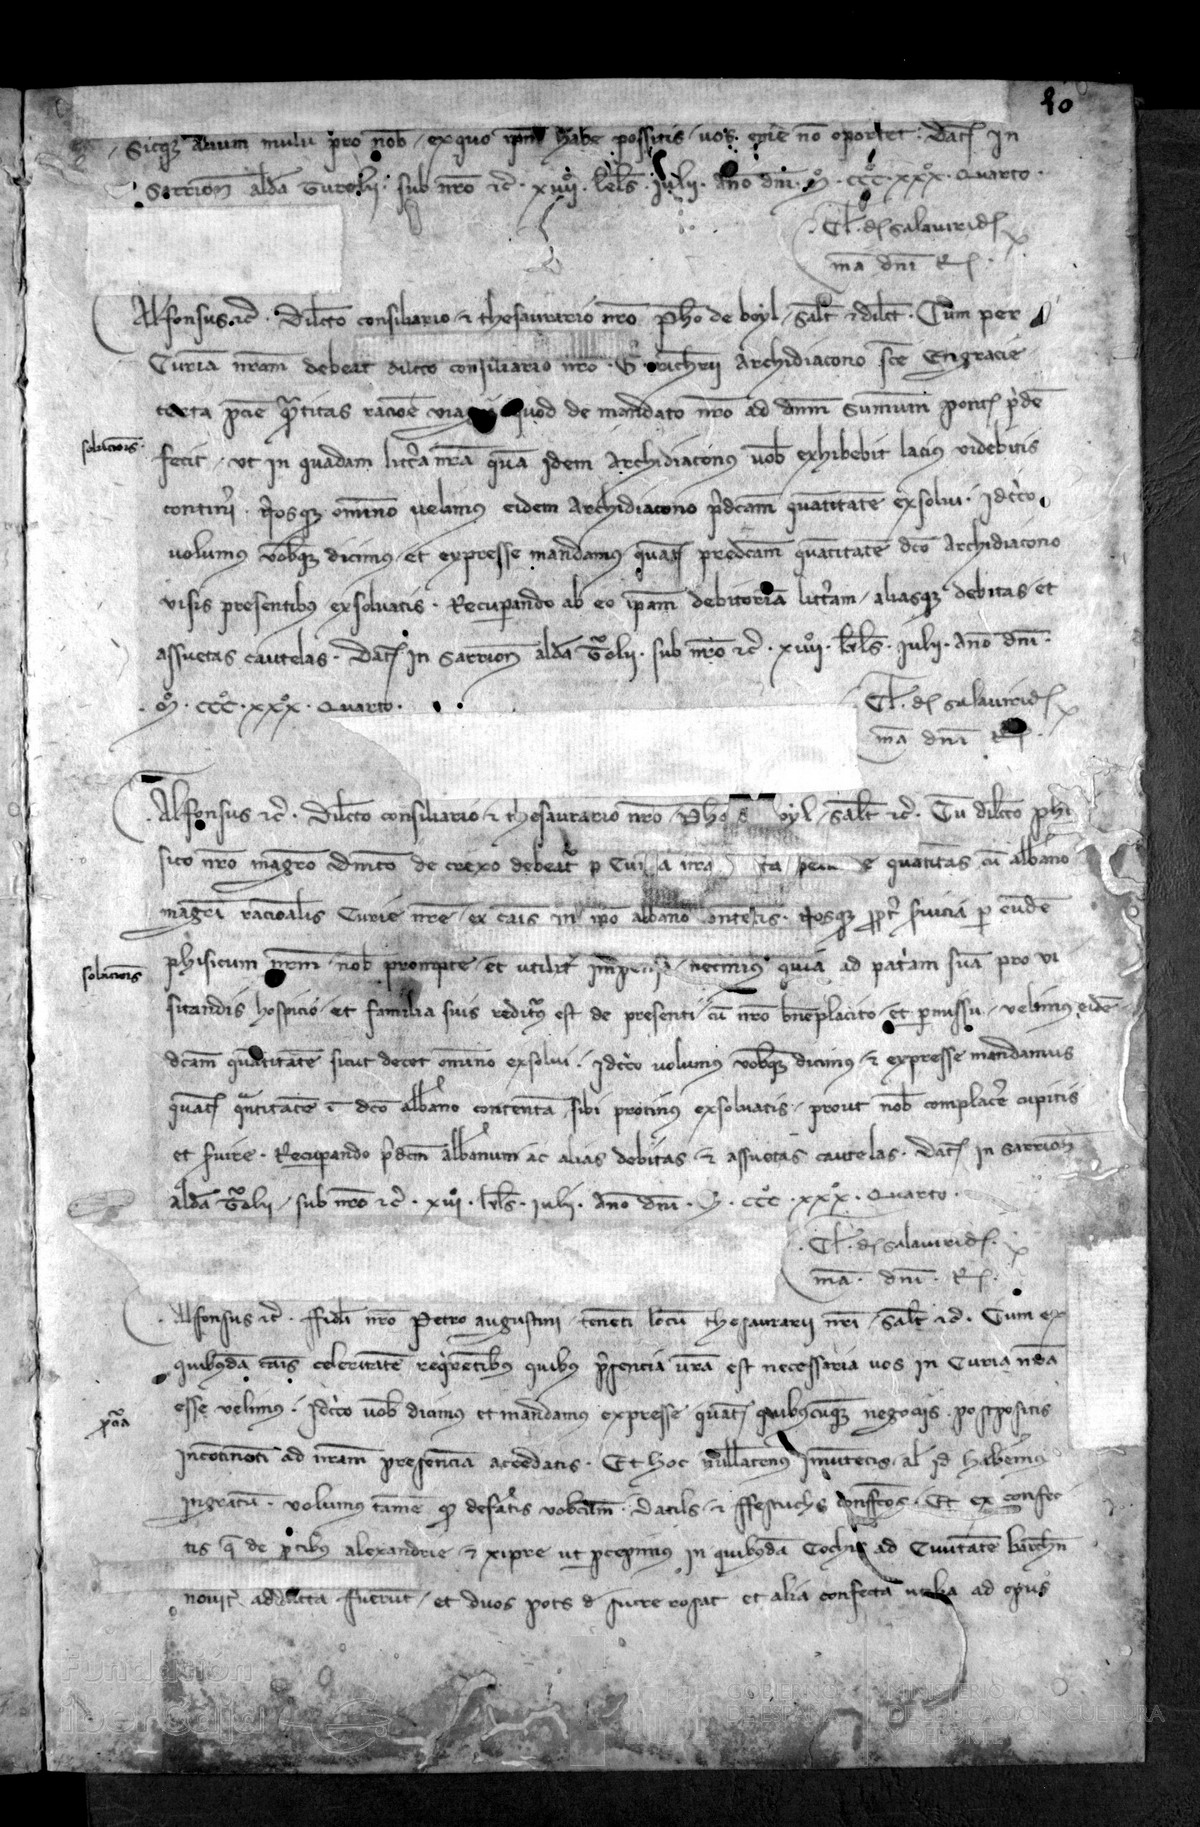 20
Sicq̄ alium mulū pro nob̄ / ex quo ip̄m habē possitis / vos eōie nō oportet. Dat̄ in
Sarrion aldēa Turolii. sub nr̄o ⁊c̄. xviiº. kl̄s. Julii. Año dñi. Mº. CCCº. XXXº. Quarto.
Cl̄. de salauridȩ
mā dñi R̄
Alfonsus ⁊c̄. Dil̄cto consiliario ⁊ thesaurario nr̄o P̄ho de boyl / Sal̄t ⁊ dil̄ct̄. Cum per
Curiā nr̄am debeat̄ dil̄cto consiliario nr̄o. G. Archidiacono sc̄e Engracie
certa peccīe q̄ntitas racōe quod de mandato nr̄o ad dn̄m Sum̄um Pontif̄ p̄dē
solucionis
fecit / vt in quadam litt̄a nr̄a quā idem Archidiaconus vob̄ exhibebit lacius videbitis
contin̄i. Nosq̄ om̄ino velimus eidem Archidiacono p̄dc̄am quātitatē exsolui. Idc̄co
volumus vob̄q̄ dicimus et expresse mandamus quat̄ predc̄am quātitatē dc̄o Archidiacono
visis presentibus exsoluatis. Recuperando ab eo ip̄am debitoriā litt̄am / aliasq̄ debitas et
assuetas cautelas. Dat̄ in Sarrion aldēa T̄olii. sub nr̄o ⁊c̄. xviiº. kl̄s. Julii. Año dñi.
Mº. CCCº. XXXº. Quarto.
Cl̄. de salauridȩ
mā dñi R̄
Alfonsus ⁊c̄. Dil̄cto consiliario ⁊ thesaurario nr̄o P̄ho oyl / Sal̄t ⁊c̄. Cū dil̄cto phi
sico nr̄o magr̄o Dn̄ico de crexo debeat̄ p̄ quātitas cū albāno
magr̄i rac̄onalis Curie nr̄e / ex cāis in ip̄o albano contentis. Nosq̄ p̄pt̄ s̄uicia p̄ eūdē
solucionis
phisicum nr̄m nob̄ prompte et utilit̄ impensa / quia ad pat̄am suā pro vi
sitandis hospicio et familia suis reditur̄ est de presenti cū nr̄o bn̄eplacito et p̄missu / velimus eidē
dc̄am quātitatē sicut decet om̄ino exsolui. Idc̄co volumus vob̄q̄ dicimus ⁊ expresse mandamus
quat̄ q̄ntitatē ī dc̄o albano contentā sibi protinus exsoluatis / prout nob̄ complac̄e cupitis
et s̄uire. Recup̄ando p̄dc̄m albanum ac alias debitas ⁊ assuetas cautelas. Dat̄ in Sarrion
aldēa T̄olii / sub nr̄o ⁊c̄. xviº. kl̄s. Julii. Año dñi. Mº. CCCº. XXXº. Quarto.
Cl̄. de salauridȩ.
mā. dñi. R̄.
Alfonsus ⁊c̄. ffideli nr̄o Petro augustini / teneti locū thesaurarii nr̄i / Sal̄t ⁊c̄. Cum ex
quibusdā cāis celeritatē req̄rentibus quibus p̄sencia vr̄a est necessaria vos in Curia nr̄a
esse velimus. Idc̄co vob̄ dicimus et mandamus expresse quat̄ quibuscūq̄ negociis postpositis
p̄cia
incōtinēti ad nr̄am presenciā accedatis. Et hoc nullatenus inmutetis / al̄ id haberemus
ingratū. volumus tamē q̄ vobiscum. datils ⁊ ffestuchs. Et ex confec
tis q̄ de p̄tibus alexandrie ⁊ xipre ut p̄cepimus in quibusdā Cochis ad Ciuitatē barchn̄
nouit̄ adducta fuerūt / et duos pots d̄ sucre rosat et alia confecta ad opus
Fundación
ibercaja
GOBIERNO
DE ARAGON
MINISTERIO
DE EDUCACIÓN, CULTURA
Y DEPORTE